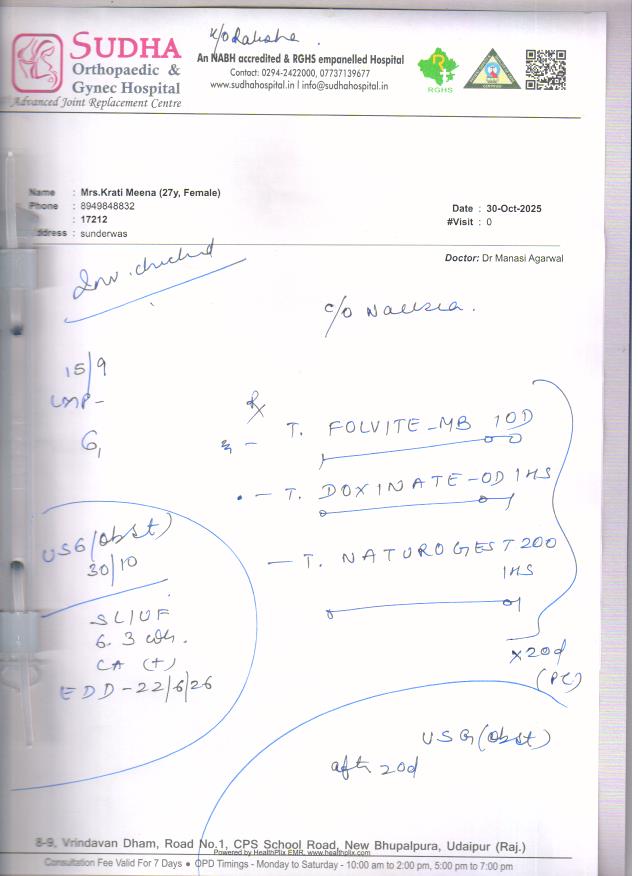 SUDHA
Orthopaedic &
Gynec Hospital
Advanced Joint Replacement Centre
An NABH accredited & RGHS empanelled Hospital
Contact: 0294-2422000, 07737139677
www.sudhahospital.in | info@sudhahospital.in
RGHS
Name : Mrs.Krati Meena (27y, Female)
Phone : 8949848832
: 17212
ddress : sunderwas
Date : 30-Oct-2025
#Visit : 0
Doctor: Dr Manasi Agarwal
c/o Nausea.
15/9
LMP -
G,
Rx
T. FOLVITE-MB 1OD
- T. DOXINATE-OD 1HS
- T. NATUROGEST 200
1HS
x20d
(PC)
USG (obst)
30/10
SLIUF
6.3 wks.
CA (+)
EDD-22/6/26
USG (obst)
after 20d
8-9, Vrindavan Dham, Road No.1, CPS School Road, New Bhupalpura, Udaipur (Raj.)
Powered by HealthPlix EMR. www.healthplix.com
Consultation Fee Valid For 7 Days ● OPD Timings - Monday to Saturday - 10:00 am to 2:00 pm, 5:00 pm to 7:00 pm